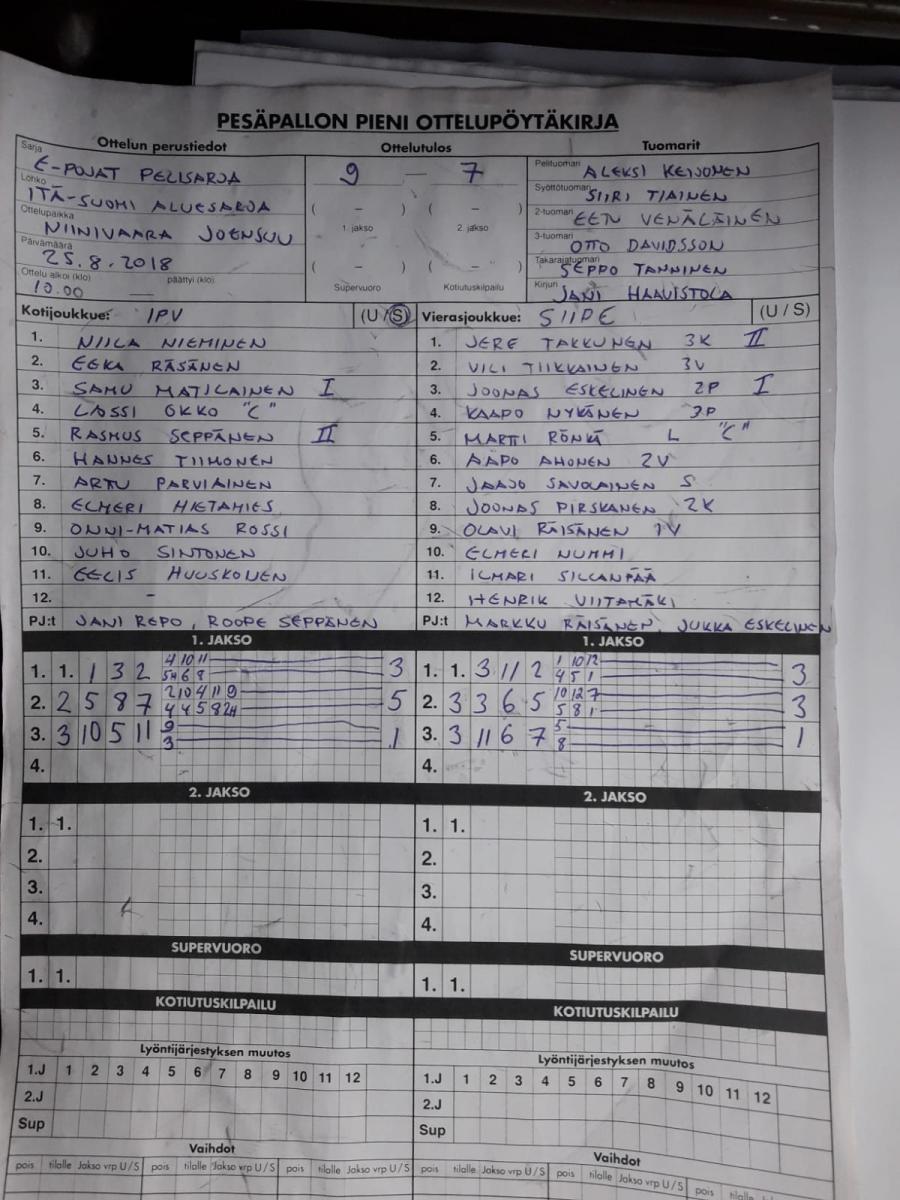 PESÄPALLON PIENI OTTELUPÖYTÄKIRJA
Ottelun perustiedot
Sarja E-POJAT PELISARJA
Lohko ITÄ-SUOMI ALUESARJA
Ottelupaikka NIINIVAARA JOENSUU
Päivämäärä 25.8.2018
Ottelu alkoi (klo) päättyi (klo)
10.00 —
Ottelutulos
9 — 7
( – ) ( – )
1. jakso 2. jakso
( – ) ( – )
Supervuoro Kotiutuskilpailu
Tuomarit
Pelituomari ALEKSI KEIJONEN
Syöttötuomari SIIRI TIAINEN
2-tuomari EETU VENÄLÄINEN
3-tuomari OTTO DAVIDSSON
Takarajatuomari SEPPO TANNINEN
Kirjuri JANI HAAVISTOLA
Kotijoukkue: IPV (U / S)
1. NIILA NIEMINEN
2. EEKA RÄSÄNEN
3. SAMU MATILAINEN I
4. LASSI OKKO "C"
5. RASMUS SEPPÄNEN II
6. HANNES TIIMONEN
7. ARTU PARVIAINEN
8. ELMERI HIETAMIES
9. ONNI-MATIAS ROSSI
10. JUHO SINTONEN
11. EELIS HUUSKONEN
12. -
PJ:t JANI REPO, ROOPE SEPPÄNEN
Vierasjoukkue: SIIPE (U / S)
1. JERE TAKKUNEN 3K II
2. VILI TIIKKAINEN 3V
3. JOONAS ESKELINEN 2P I
4. KAAPO NYKÄNEN 3P
5. MARTTI RÖNKÄ L "C"
6. AAPO AHONEN 2V
7. JAAJO SAVOLAINEN S
8. JOONAS PIRSKANEN 2K
9. OLAVI RÄISÄNEN 1V
10. ELMERI NUMMI
11. ILMARI SILLANPÄÄ
12. HENRIK VIITAMÄKI
PJ:t MARKKU RÄISÄNEN, JUKKA ESKELINEN
1. JAKSO
1. 1. 1 3 2 4 10 11 3
6 8
2. 2 5 8 7 2 10 4 11 9 5
4 4 5 8
3. 3 10 5 11 9 1
3
4.
1. JAKSO
1. 1. 3 11 2 1 10 12 3
4 5 1
2. 3 3 6 5 10 12 7 3
5 8 1
3. 3 11 6 7 5 1
8
4.
2. JAKSO
1. 1.
2.
3.
4.
2. JAKSO
1. 1.
2.
3.
4.
SUPERVUORO
1. 1.
SUPERVUORO
1. 1.
KOTIUTUSKILPAILU
KOTIUTUSKILPAILU
Lyöntijärjestyksen muutos
1.J 1 2 3 4 5 6 7 8 9 10 11 12
2.J
Sup
Lyöntijärjestyksen muutos
1.J 1 2 3 4 5 6 7 8 9 10 11 12
2.J
Sup
Vaihdot
pois tilalle Jakso vrp U / S pois tilalle Jakso vrp U / S pois tilalle Jakso vrp U / S
Vaihdot
pois tilalle Jakso vrp U / S pois tilalle Jakso vrp U / S pois tilalle Jakso vrp U / S